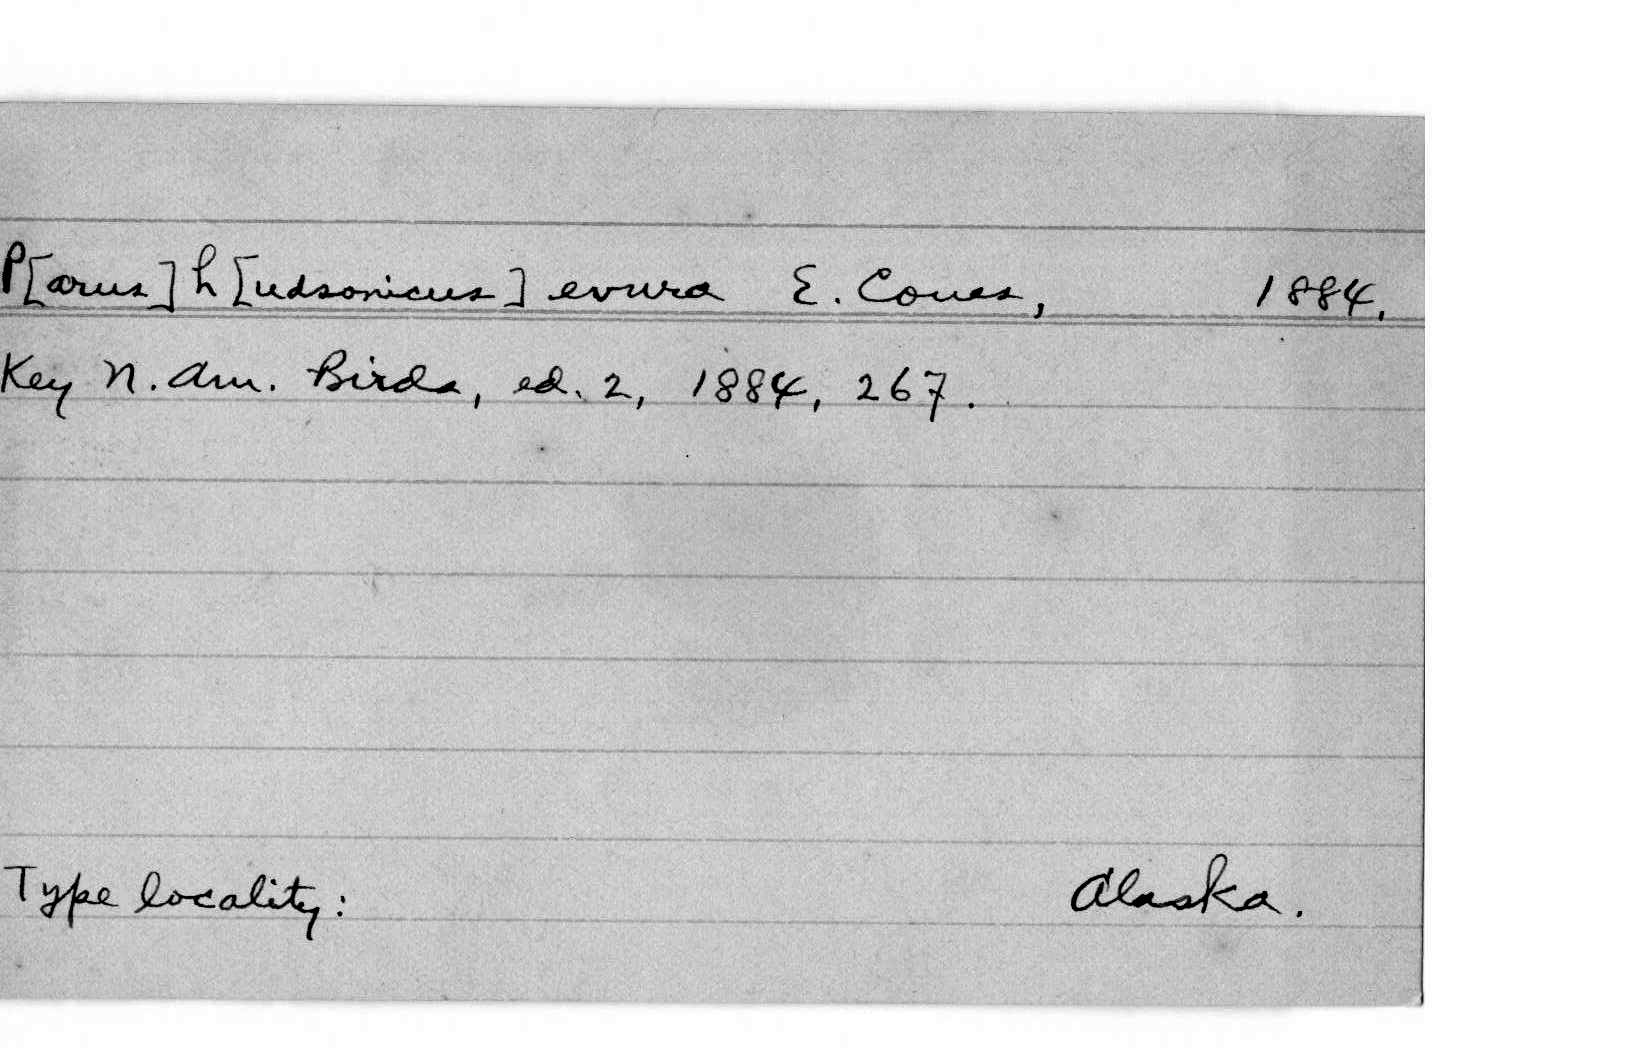 P[arus] h[udsonicus] evura E. Coues, 1884.
Key N. Am. Birds, ed. 2, 1884, 267.
Type locality: Alaska.